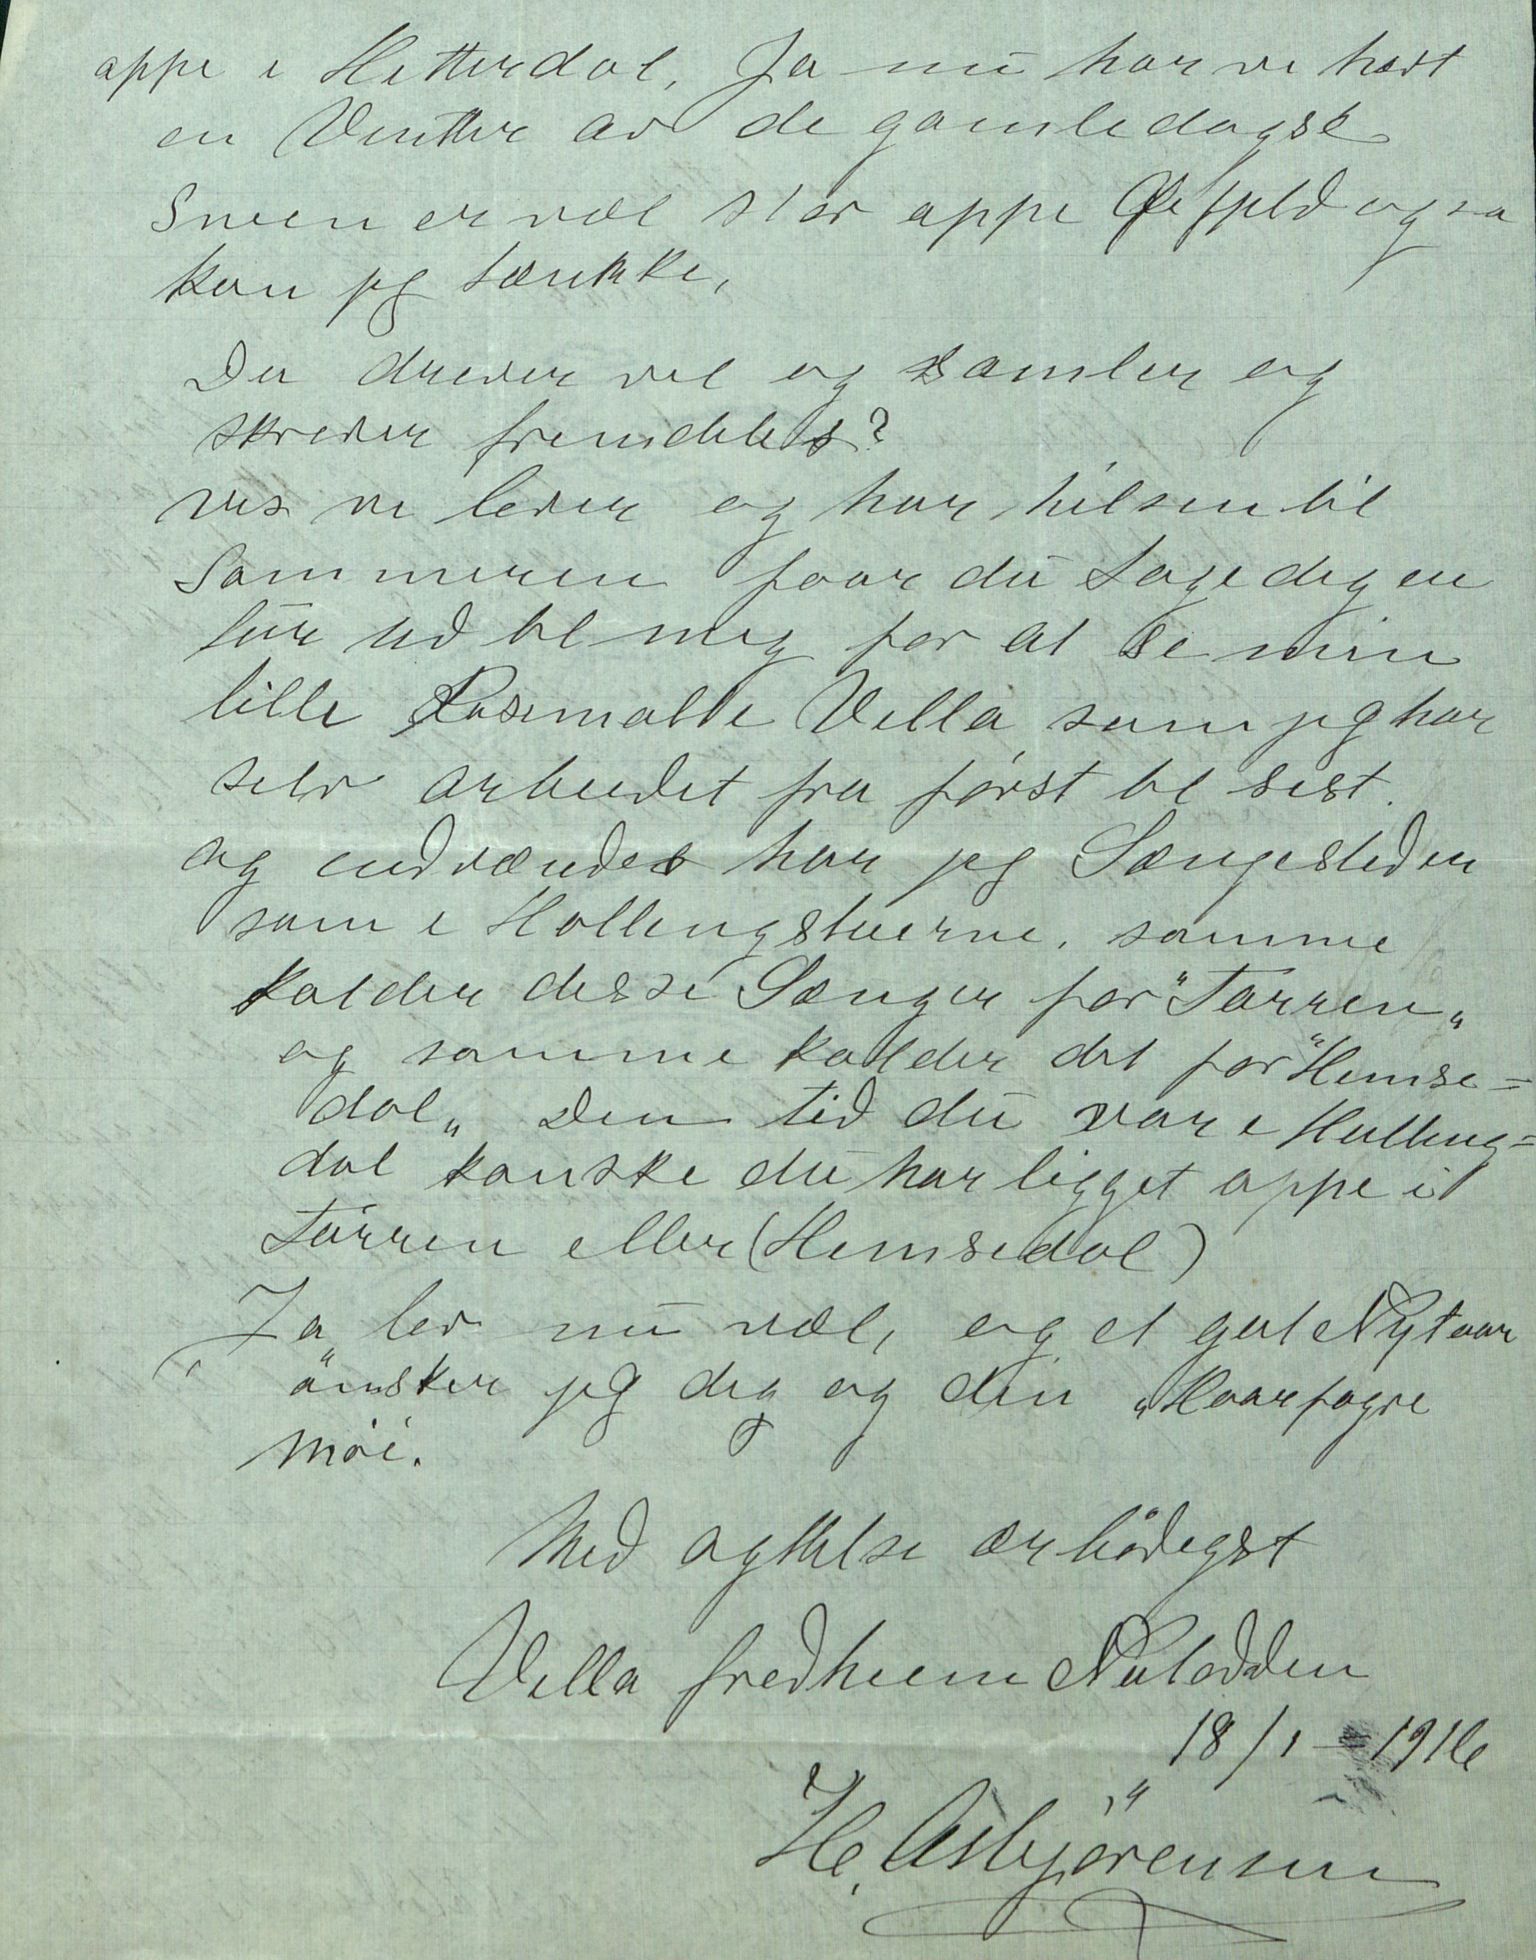 oppe i Hitterdal, Ja nu har vi havt
en Vintter av de gamledagse
Sneen er vel stor oppe fjeld ogsa
kan jeg tænkke,
Du drever vel og samler og
skrever fremdeles?
vis vi lever og har hilsen til
Sommeren faar du tage dig en
tur ud til mig for at se min
lille Rosemalte Villa, som jeg har
selv arbeidet fra først til sist.
og indvændes har jeg Sængesteder
som i Hallingstuerne, somme
kalder disse Sænger for "Torren"
og somme kalder det for "Hemse=
dal" Den tid du var i Halling=
dal kanske du har ligget oppe i
Torren eller (Hemsedal)
Ja lev nu væl, og et got Nyt aar
ønsker jeg dig og din "Haarfagre
møi.
Med agttelse ærbødigst
Villa fredheim Notodden
18/1 - 1916
H. Asbjørensen